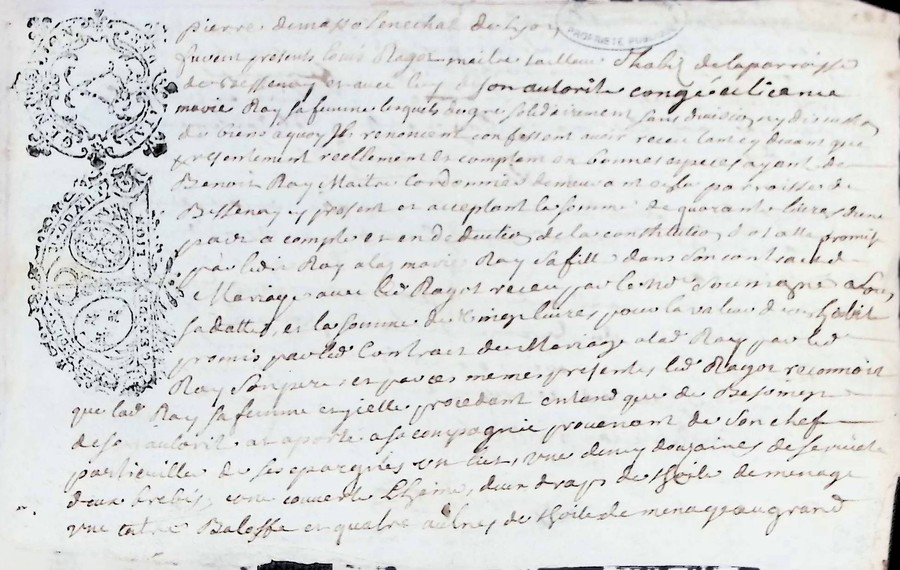 pierre demasso senechal de Lyon
PROPRIETE PUBLIQUE
furent presents Louis Ragot maitre tailleur Dhabit de la parroisse
de Bessenay et avec luy de son autorité congée et licence
marie Ray sa femme lesquels de gré solidairement sans division ny discussion
de biens a quoy Ils renoncent confessent avoir receu tant cy devant que
presentement reellement et comptem en bonnes especes ayant de
Benoit Ray Maitre Cordonnier demeurant a la parroisse de
Bessenay present et acceptant la somme de quarante livres d'une
part a compte et en deduction de la constitution dotalle promise
par ledit Ray a lad marie Ray sa fille dans son contract de
Mariage avec led Ragot receu par le No a Son
sa datte, et la somme de livres pour la valeur d'un habit
promis par led Contract de Mariage a lad Ray par led
Ray son pere et par ces memes presentes led Ragot reconnoit
que lad Ray sa femme et d'icelle procedant entend que de Besoin
de son autorité at aporté a sa compagnie provenant de son chef
particuille de ses epargnes un lict, une demy douzaines de serviete
deux brebis, une couverte Laine, deux draps de thoile de menage
une Baloffe et quatre aulnes de thoile de menage au grand